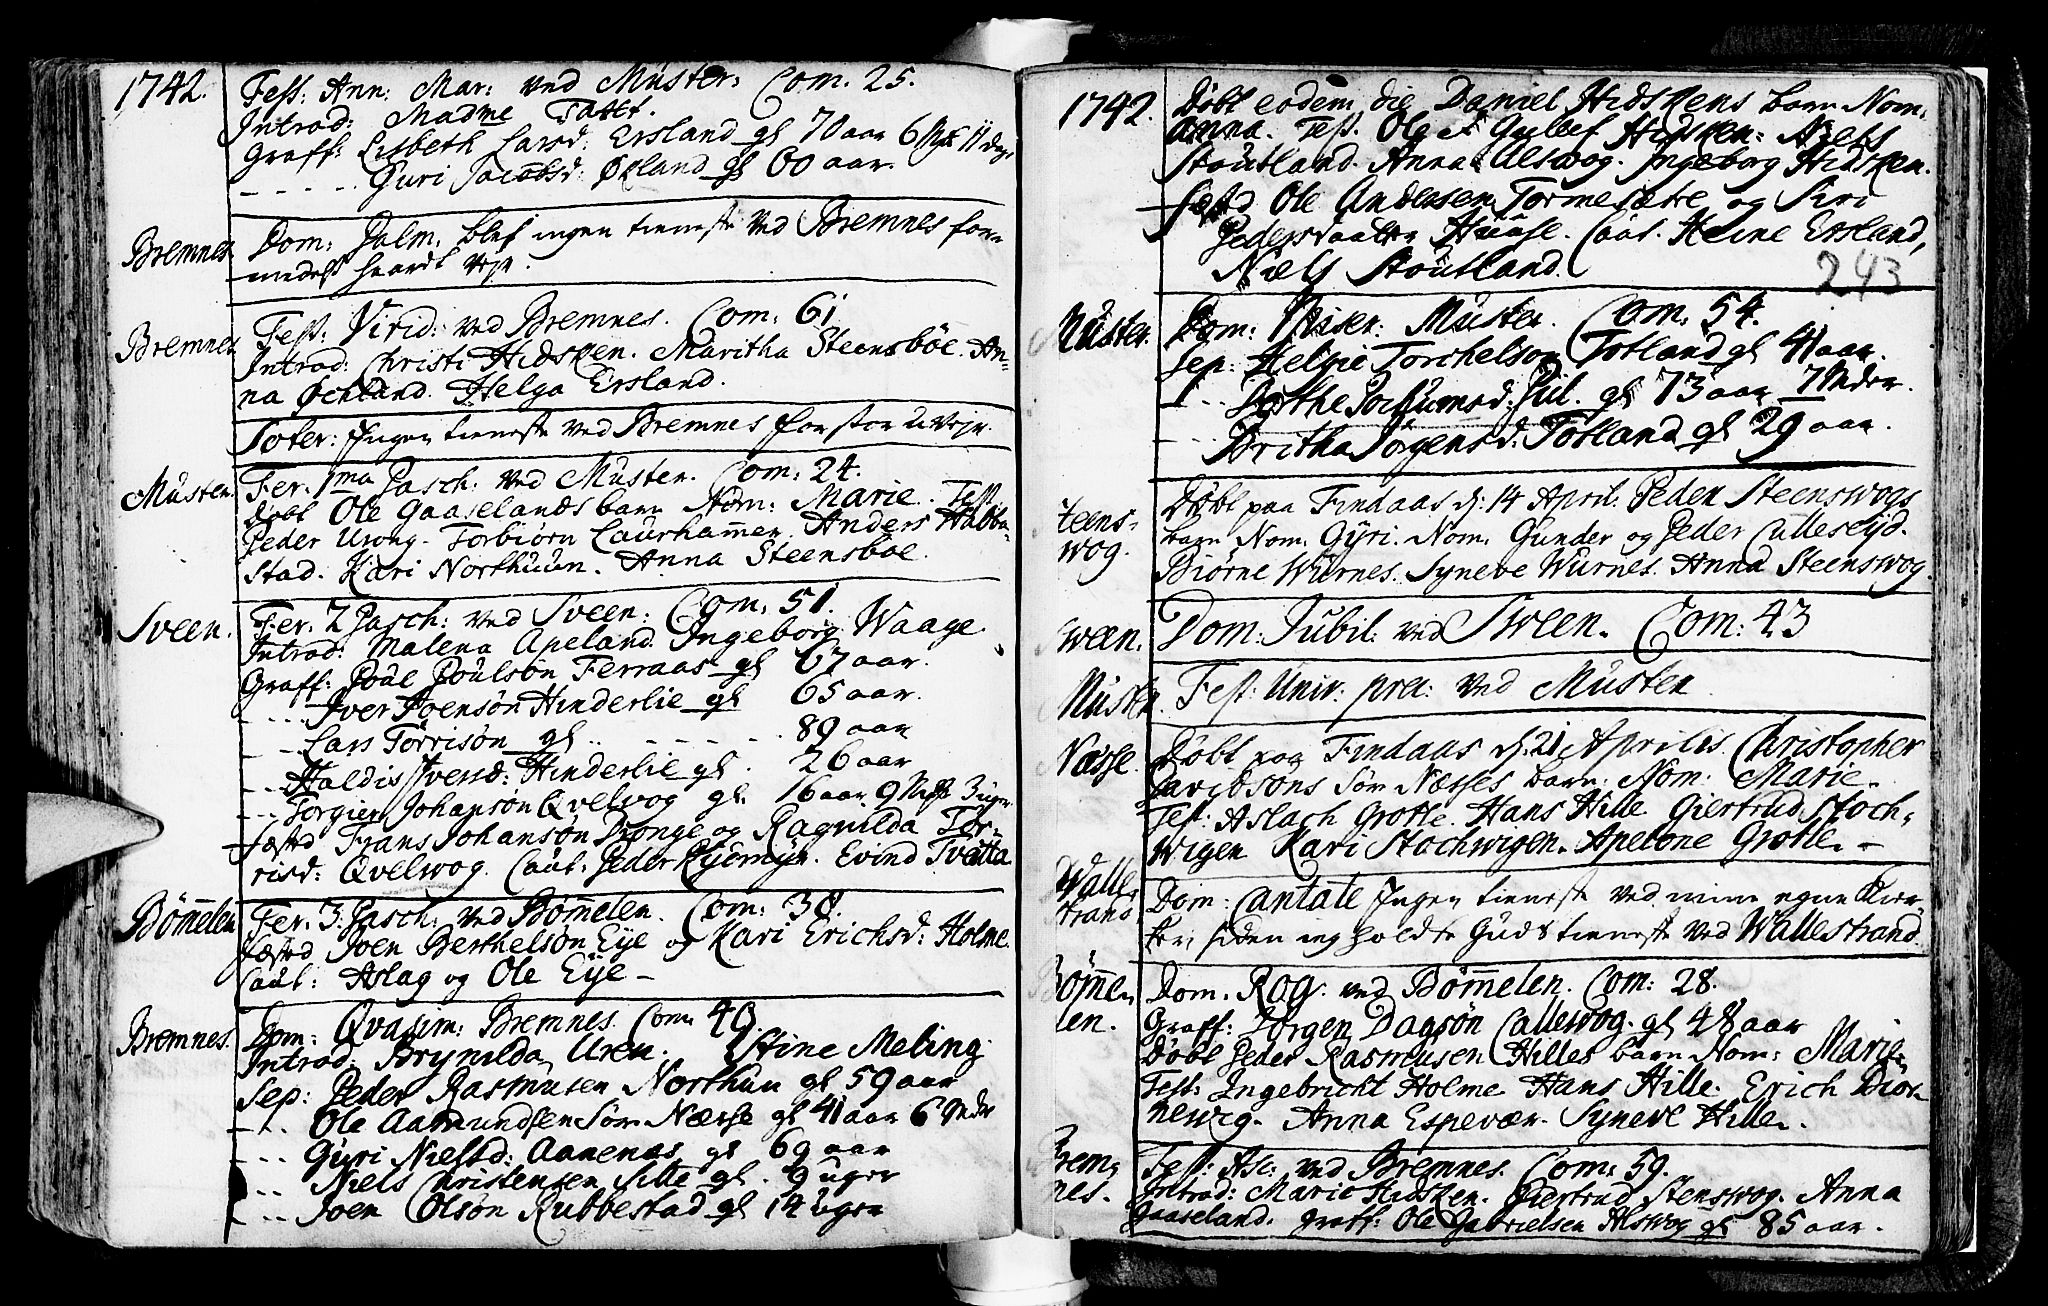 1742.
Fest: Ann: Mar: ved Müster: Com. 25.
Introd: Madme Tatt.
Graff: Lisbeth Larsd: Ersland gl 70 aar 6 11 dage
- - - - - Guri Jacobsd: Økland gl 60 aar.
Bremnes.
Dom: Palm: blef ingen tieneste ved Bremnes for-
medelst haardt Vejr.
Bremnes
Fest: Virid: ved Bremnes. Com: 61.
Introd: Christi Hidsken. Maritha Steensböe. An-
na Øchland. Helga Ersland.
Soter: Ingen tieneste ved Bremnes for stor uvejr.
Müster.
Fer: 1ma Pasch: ved Müster. Com: 24.
Döbt Ole Gaaselands barn Nom: Marie. Test
Peder Urang. Torbiörn Laurhamer. Anders Habba-
stad. Kari Northuun. Anna Steensböe.
Sveen.
Fer. 2 Pasch: ved Sveen: Com: 51.
Introd: Malena Apeland. Ingeborg Waage
Graff: Poül Poülsön Ferraas gl 67 aar.
- - - - Iver Poensön Hinderlie gl 65 aar.
- - - Lars Torrisön gl . . - - - - - . 89 aar
- - - Haldis Sversd: Hinderlie gl . 26 aar
- - - Torgier Johansön Qvelvog gl. 16 aar 9 3 uger
fæsted Frans Johansön Dronge og Ragnilda Tor-
risd: Qvelwog. Caut: Peder . Evind Tvætta
Bömelen
Fer: 3. Pasch: ved Bömelen. Com: 38.
fæsted Joen Berthelsön Eye og Kari Erichsd: Holme.
Caut: Aslag og Ole Eÿe -
Bremnes.
Dom: Qvasim: Bremnes. Com 49.
Introd: Brynilda Uren. Stine Meling.
Sep: Peder Rasmusen Northun gl 59 aar
- - . Ole Aamundsen Sör Næsse gl 41 aar 6
- - - Gÿri Nielsd: Aanenas gl 69 aar
- - Niels Christensen Sille gl . 9 uger
- - - Joen Olsön Rubbestad gl 14 uger
1742.
Döbt eodem die Daniel Hidskens barn Nom.
Anna. Test. Ole et Gullef Hidsken: Niels
Stoutland. Anna Alswog. Ingeborg Hidsken.
fæsted Ole Andersen Tormesætre og Siri
Pedersdaatter Huuse. Caut. Heine Ersland,
Niels Stoutland.
243
Müster.
Dom: Miser: Müster. Com: 54.
Sep: Helgie Torchelson Totland gl 41 aar.
- - - Dorthe Pül. gl 73 aar 7
- - - Britha Jörgensd: Totland gl 29 aar.
Steens-
wog.
Döbt paa Findaas d: 14 April. Peder Steenswogs
barn Nom: Gÿri. Nom: Gunder og Peder Culleseÿd.
Biörne Würnes. Syneve Würnes. Anna Steenswog.
Sween.
Dom: Jubil: ved Sween. Com: 43
Müster.
Fest: Univ: prec: ved Müster
Næsse.
Döbt paa Findaas d: 21 Aprilis. Christopher
Davidsons Sör Næsses barn: Nom: Marie-
Test: Aslach Grotle. Hans Hille. Giertrud Stoch-
wigen Kari Stochwigen. Apelone Grotle. -
Walle-
strand
Dom: Cantate Ingen tieneste ved mine egne Kier-
ker, siden ieg holdte Guds tieneste ved Wallestrand.
Böme-
len.
Dom. Rog. ved Bömelen. Com: 28.
Graff: Jörgen Dagsön Callewog. gl 48 aar
Döbt Peder Rasmusen Hilles barn Nom: Marie
Test: Ingebricht Holme Hans Hille. Erich Biör-
newig. Anna Espevær. Syneve Hille.
Brem-
nes.
Fest: Asc: ved Bremnes. Com: 59.
Introd: Marie Hidsken. Giertrud Stenswog. Anna
Gaaseland. Graff: Ole Gabrielsen Alswog gl 85 aar.